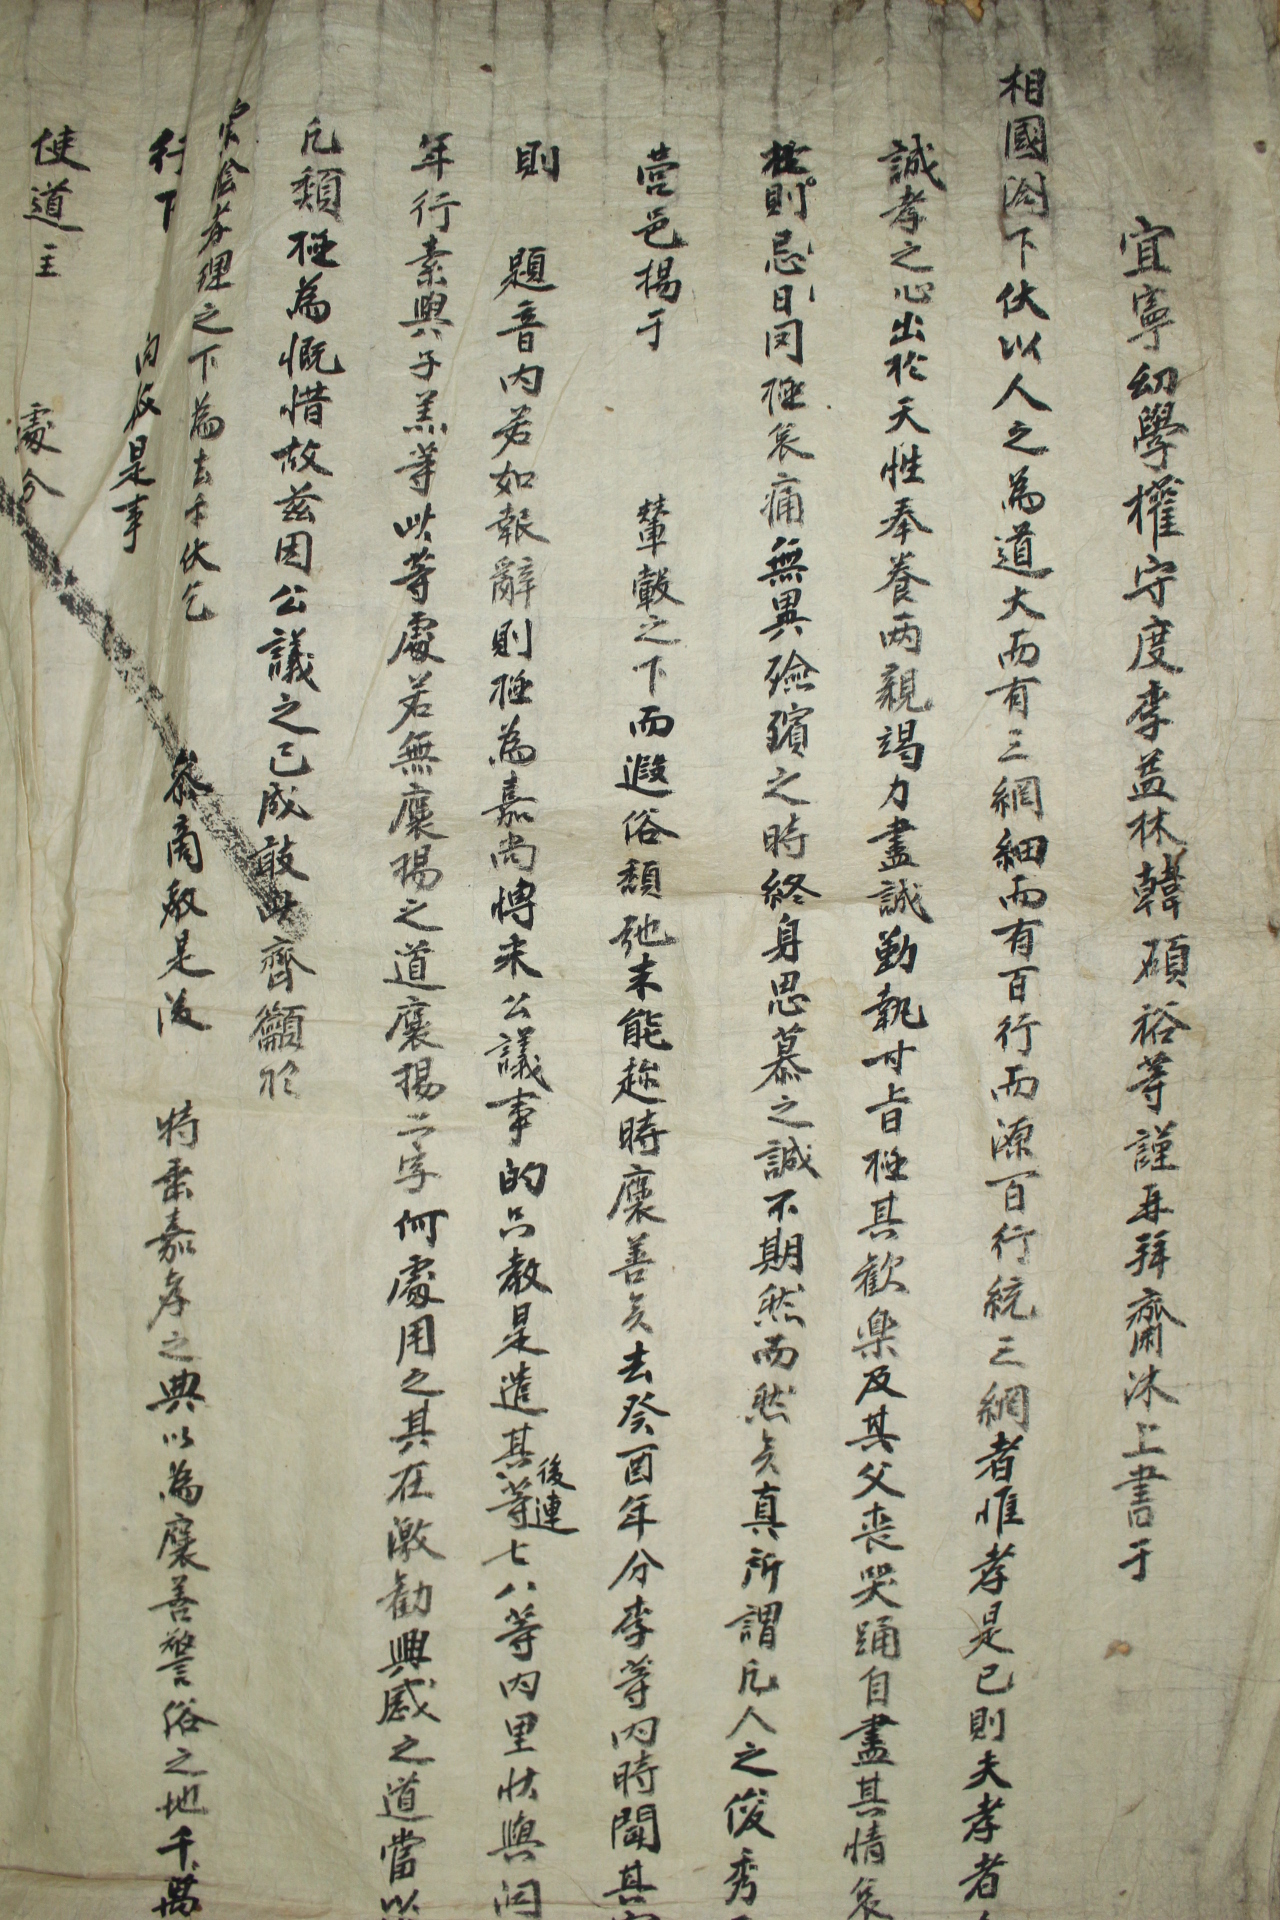 宜寧幼學權守度李益林韓碩裕等謹再拜齋沐上書于
相國閤下伏以人之為道大而有三綱細而有百行而源百行統三綱者惟孝是已則夫孝者
誠孝之心出於天性奉養兩親竭力盡誠勤執甘旨極其歡樂及其父喪哭踊自盡其情哀
則忌日同極哀痛無異殮殯之時終身思慕之誠不期然而然矣真所謂凡人之俊秀
營邑揚于 輦轂之下而遐俗頹弛未能趁時褒善矣去癸酉年分李等內時聞其
則 題音內若如報辭則極為嘉尚慱采公議事的只教是遣其後連等七八等內里狀與
年行素與子羔等此等處若無褒揚之道褒揚二字何處用之其在激勸興感之道當以
凡類極為慨惜故茲因公議之已成敢此齊籲於
參商教是後 特垂嘉孝之典以為褒善警俗之地千萬
之下為去乎伏乞
行下 內教是事
使道主 處分